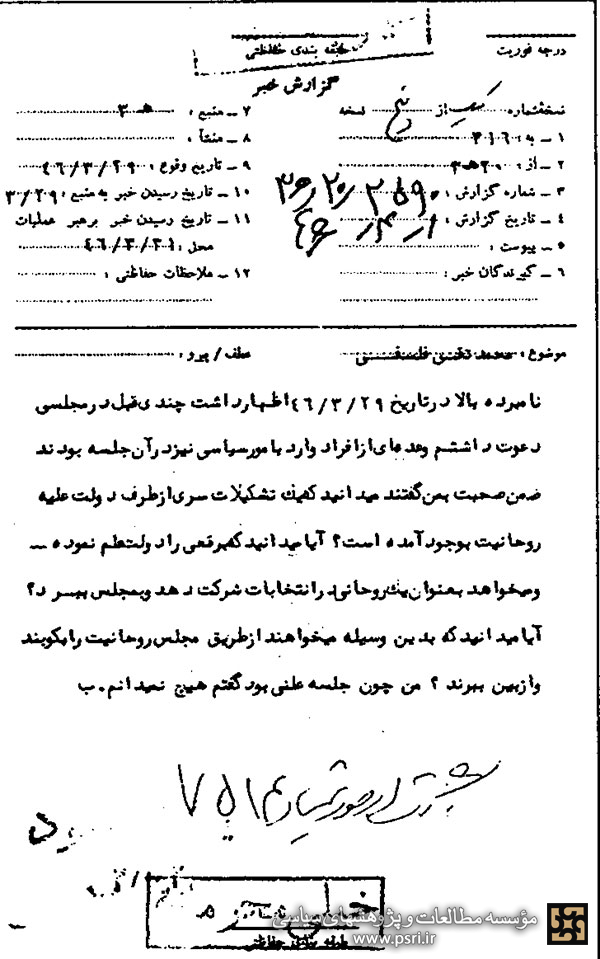 درجه فوریت
طبقه بندی حفاظتی
گزارش خبر
نسخه‌شماره یک از پنج نسخه
۱ ـ به : ۳۱۶
۲ ـ از : ۲۰ ه‍ ۳
۳ ـ شماره گزارش :
۴ ـ تاریخ گزارش :
۵ ـ پیوست :
۶ ـ گیرندگان خبر :
۷ ـ منبع :
۸ ـ منشأ :
۹ ـ تاریخ وقوع : ۴۶/۳/۲۹
۱۰ ـ تاریخ رسیدن خبر به منبع : ۳/۲۹
۱۱ ـ تاریخ رسیدن خبر برهبر عملیات
محل : ۴۶/۳/۳۱
۱۲ ـ ملاحظات حفاظتی :
موضوع : محمد تقی فلسفی
عطف / پیرو :
نامبرده بالا در تاریخ ۴۶/۳/۲۹ اظهار داشت چندی قبل در مجلسی
دعوت داشتم وعده‌ای از افراد وارد بامور سیاسی نیز در آن جلسه بودند
ضمن صحبت بمن گفتند میدانید که یک تشکیلات سری از طرف دولت علیه
روحانیت بوجود آمده است؟ آیا میدانید که برقعی را دولت علم نموده ـ
و میخواهد بعنوان یک روحانی در انتخابات شرکت دهد و بمجلس ببرد؟
آیا میدانید که بدین وسیله میخواهند از طریق مجلس روحانیت را بکوبند
و از بین ببرند ؟ من چون جلسه علنی بود گفتم هیچ نمیدانم. ب
طبقه بندی حفاظتی
مؤسسه مطالعات و پژوهشهای سیاسی
www.psri.ir